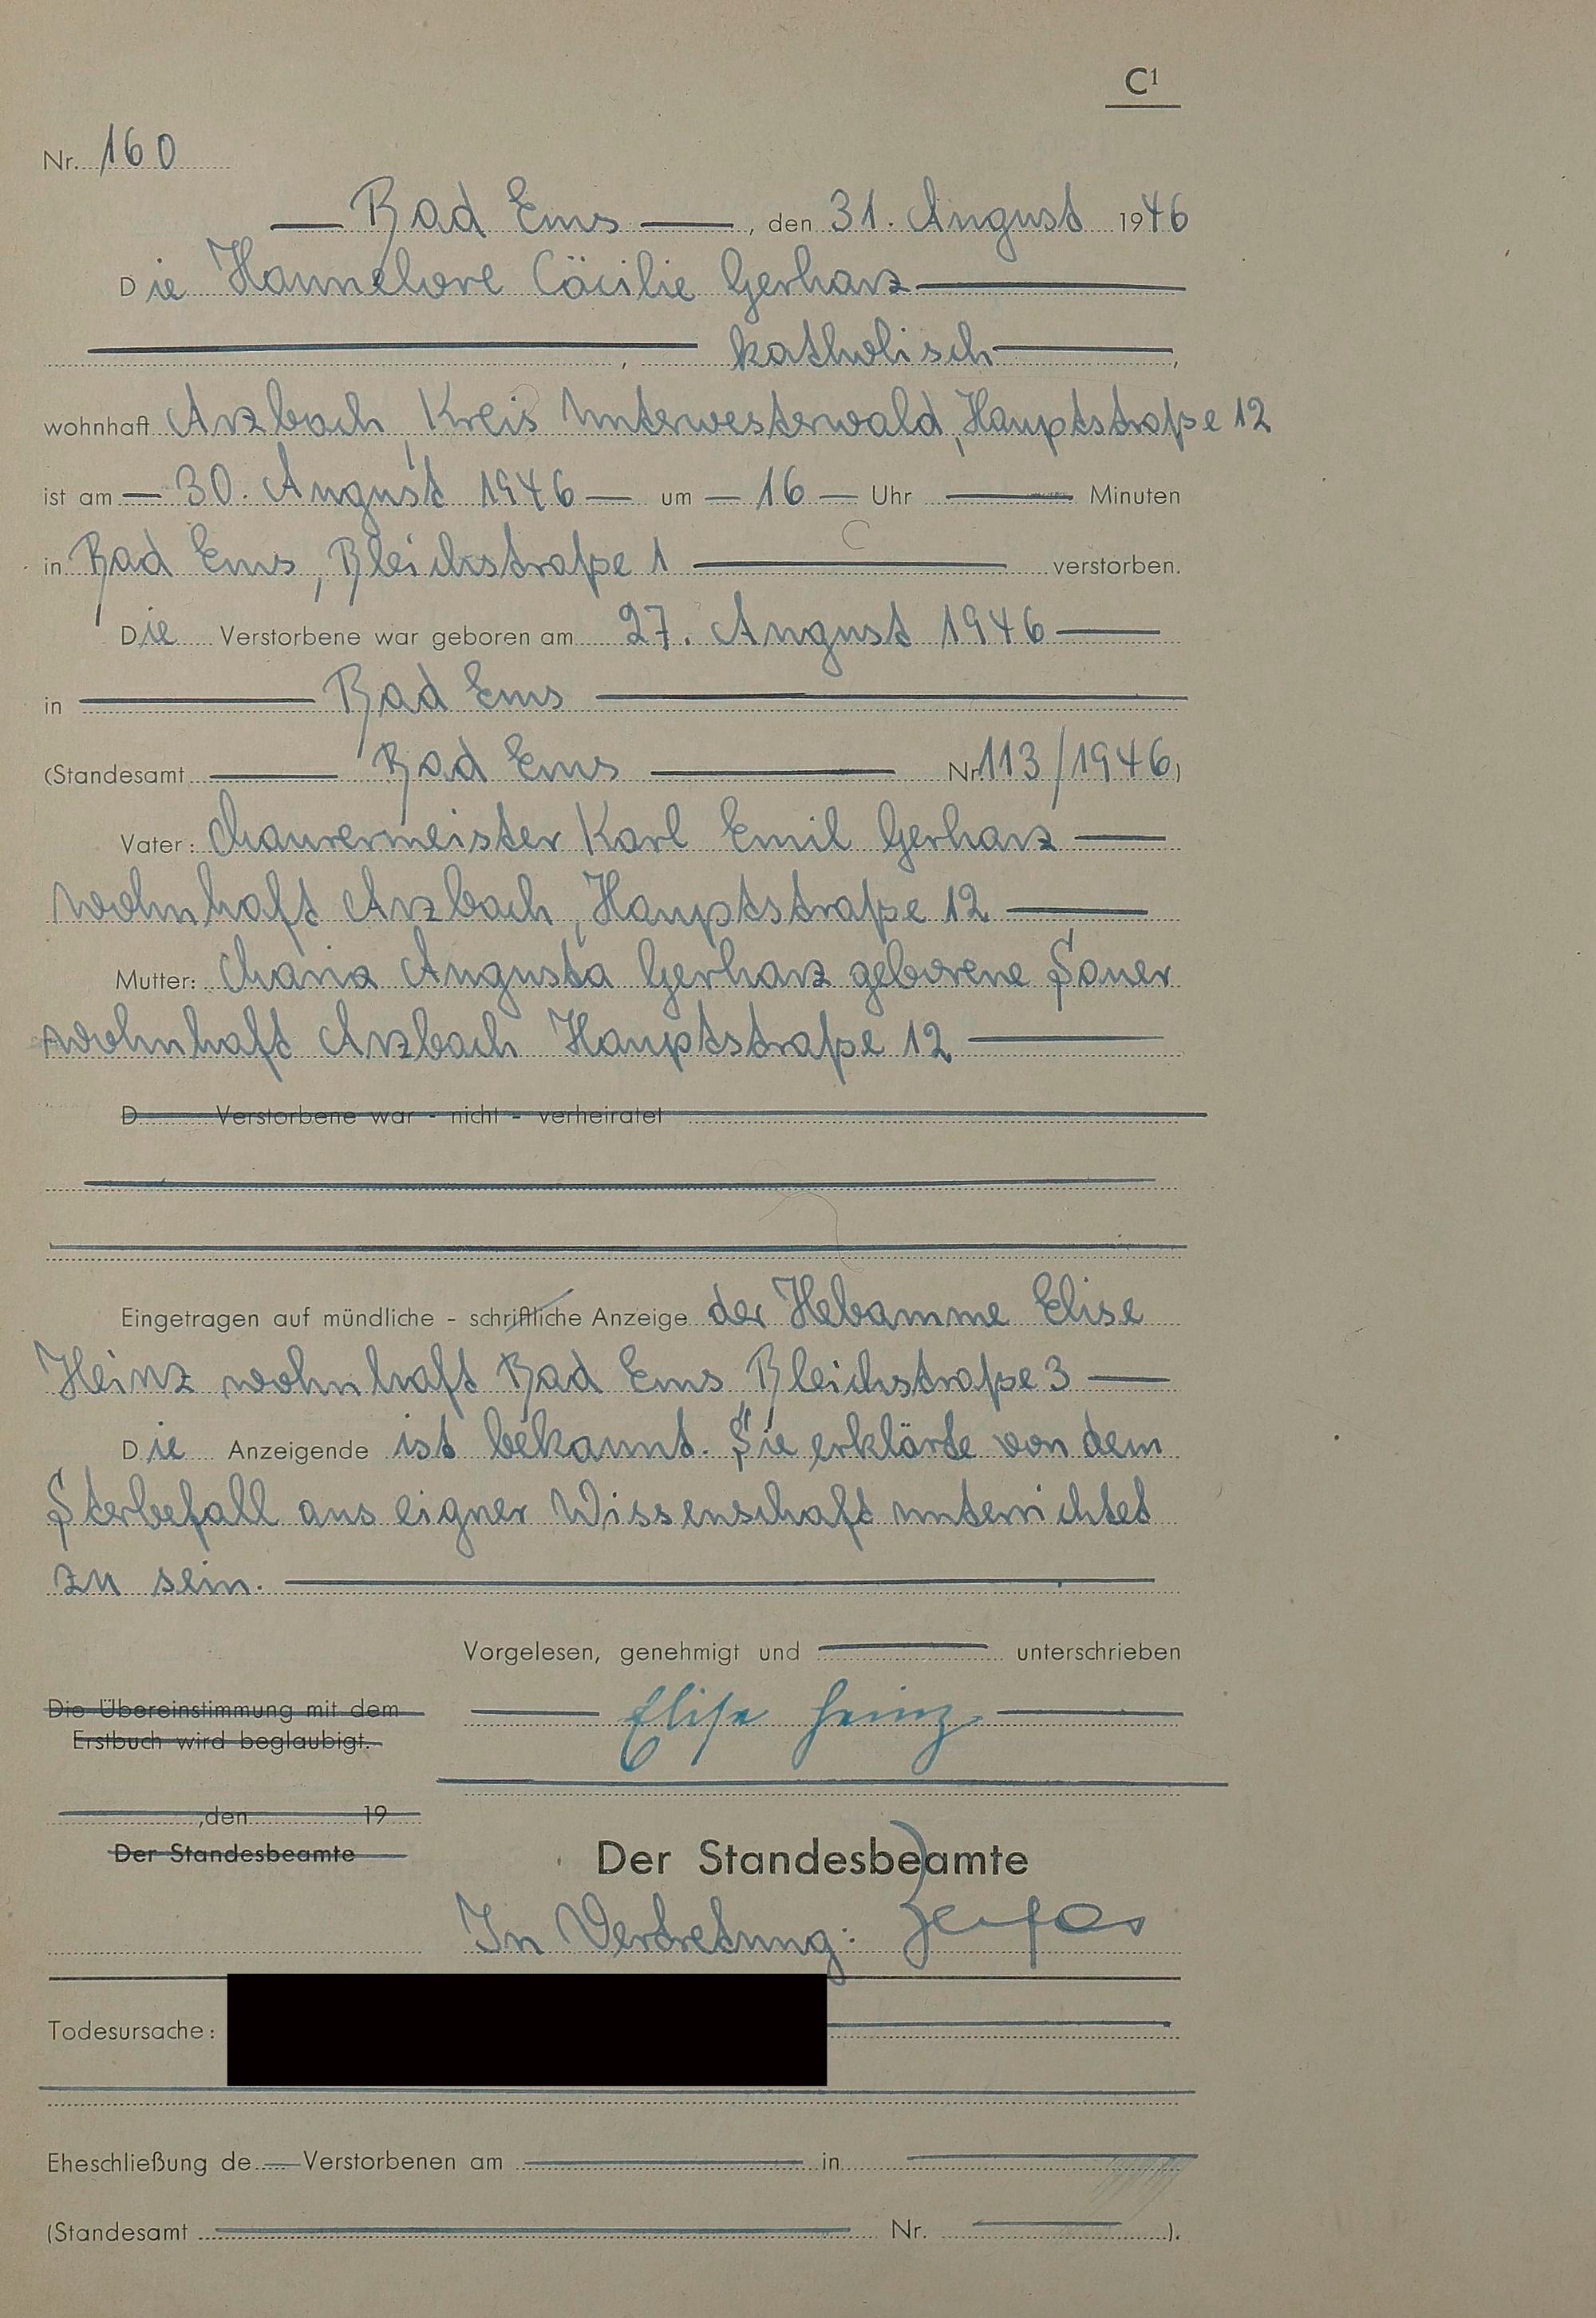 C1
Nr. 160
Bad Ems, den 31. August 1946
Die Hannelore Cäcilie Gerharz
, katholisch,
wohnhaft Arzbach, Kreis Unterwesterwald, Hauptstraße 12
ist am 30. August 1946 um 16 Uhr Minuten
in Bad Ems, Bleichstraße 1 verstorben.
Die Verstorbene war geboren am 27. August 1946
in Bad Ems
(Standesamt Bad Ems Nr. 113/1946)
Vater: Maurermeister Karl Emil Gerharz
wohnhaft Arzbach, Hauptstraße 12
Mutter: Maria Augusta Gerharz geborene Sauer
wohnhaft Arzbach Hauptstraße 12
D Verstorbene war - nicht - verheiratet
Eingetragen auf mündliche - schriftliche Anzeige der Hebamme Elise
Heinz wohnhaft Bad Ems Bleichstraße 3
Die Anzeigende ist bekannt. Sie erklärte von dem
Sterbefall aus eigner Wissenschaft unterrichtet
zu sein.
Vorgelesen, genehmigt und unterschrieben
Die Übereinstimmung mit dem
Erstbuch wird beglaubigt.
Elise Heinz
, den 19
Der Standesbeamte
Der Standesbeamte
In Vertretung:
Todesursache:
Eheschließung de Verstorbenen am in
(Standesamt Nr. ).